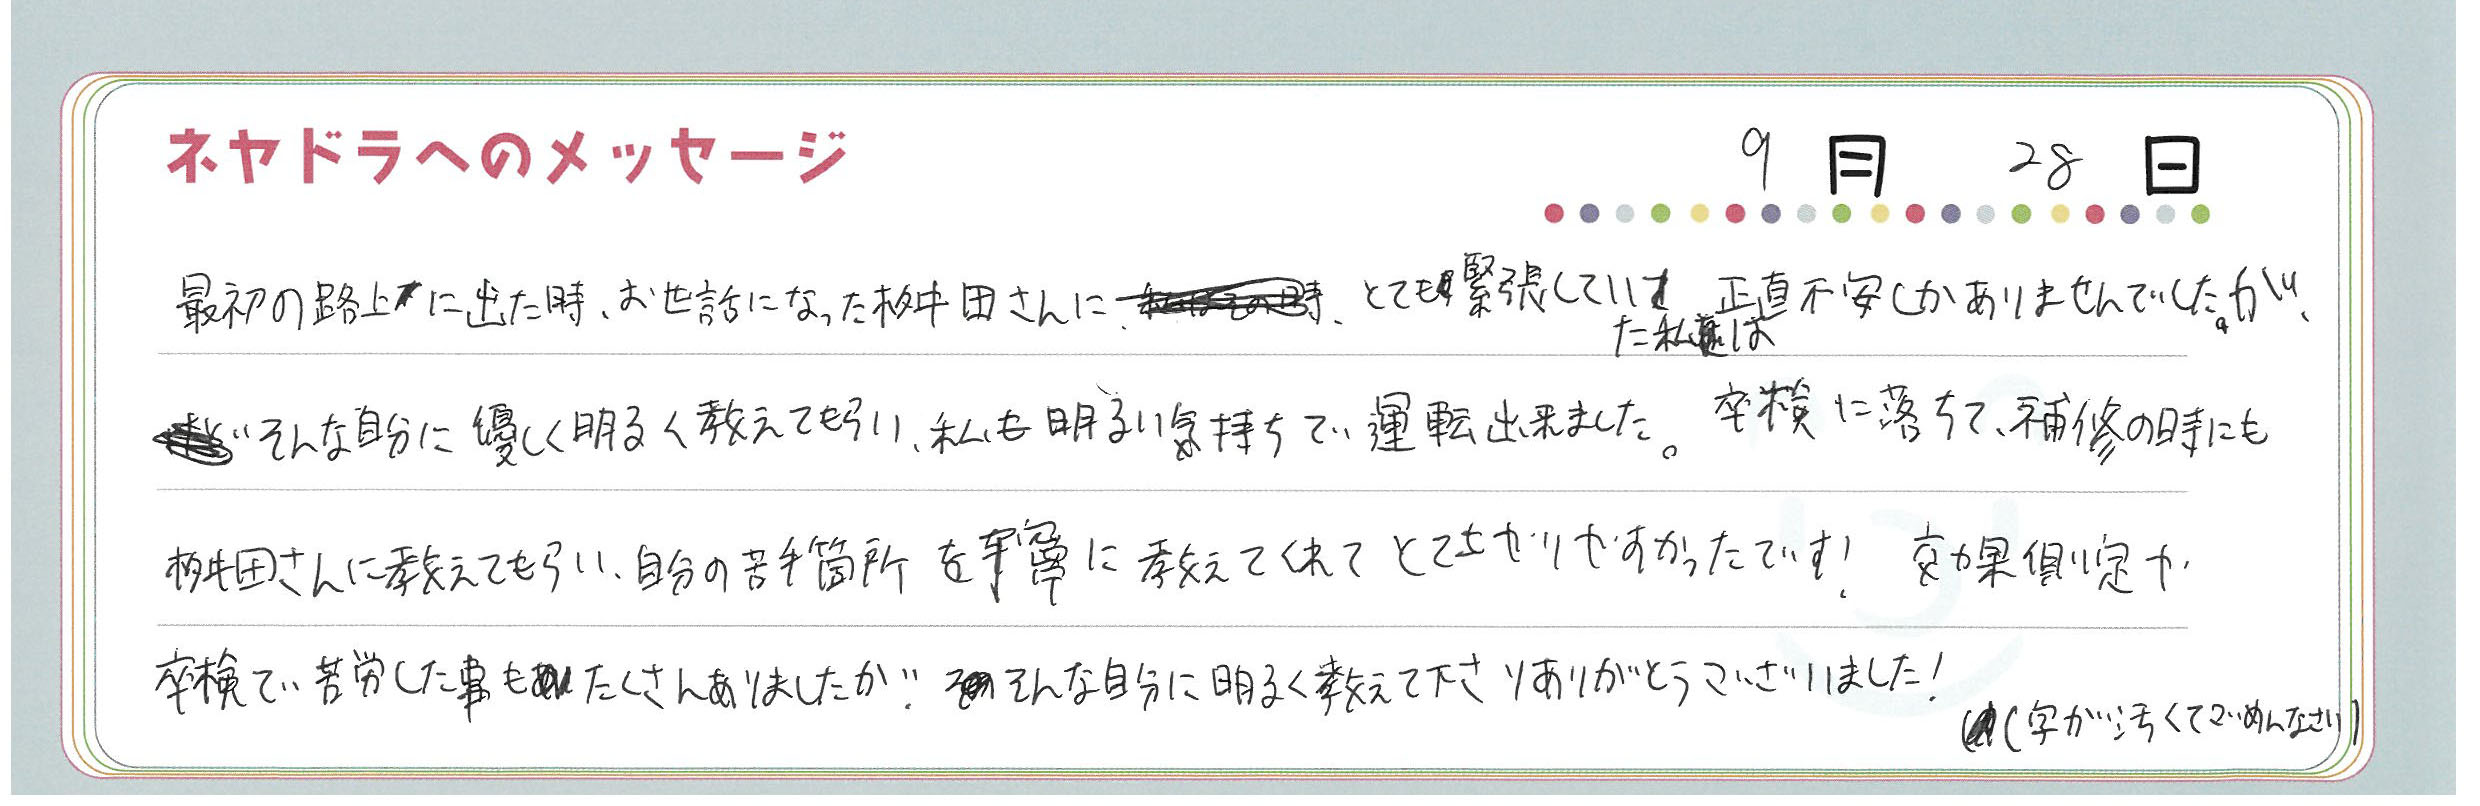 ネヤドラへのメッセージ
9月 28日
最初の路上に出た時、お世話になった桝田さんに、とても緊張していた私は 正直不安しかありませんでした。が、
そんな自分に優しく明るく教えてもらい、私も明るい気持ちで運転出来ました。卒検に落ちて、補修の時にも
桝田さんに教えてもらい、自分の苦手箇所を丁寧に教えてくれてとてもやりやすかったです! 効果測定や
卒検で苦労した事もたくさんありましたが、そんな自分に明るく教えて下さりありがとうございました!
(字が汚くてごめんなさい)